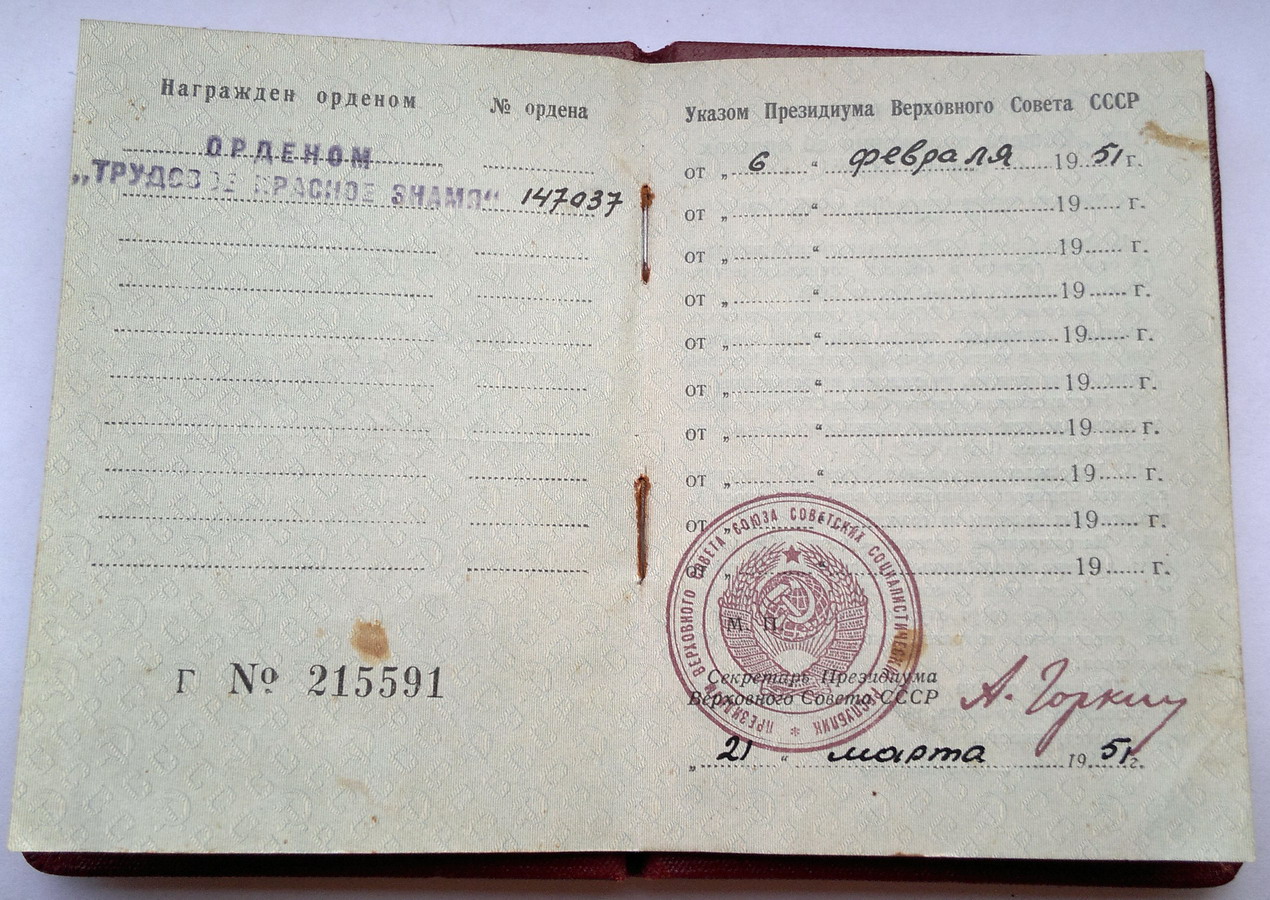 Награжден орденом № ордена
ОРДЕНОМ
„ТРУДОВОЕ КРАСНОЕ ЗНАМЯ“ 147037
Г № 215591
Указом Президиума Верховного Совета СССР
от „ 6 “ февраля 19 51 г.
от „ “ 19 г.
от „ “ 19 г.
от „ “ 19 г.
от „ “ 19 г.
от „ “ 19 г.
от „ “ 19 г.
от „ “ 19 г.
от „ “ 19 г.
от „ “ 19 г.
М. П.
Секретарь Президиума
Верховного Совета СССР А. Горкин
„ 21 “ марта 19 51 г.
ПРЕЗИДИУМ ВЕРХОВНОГО СОВЕТА СОЮЗА СОВЕТСКИХ СОЦИАЛИСТИЧЕСКИХ РЕСПУБЛИК *